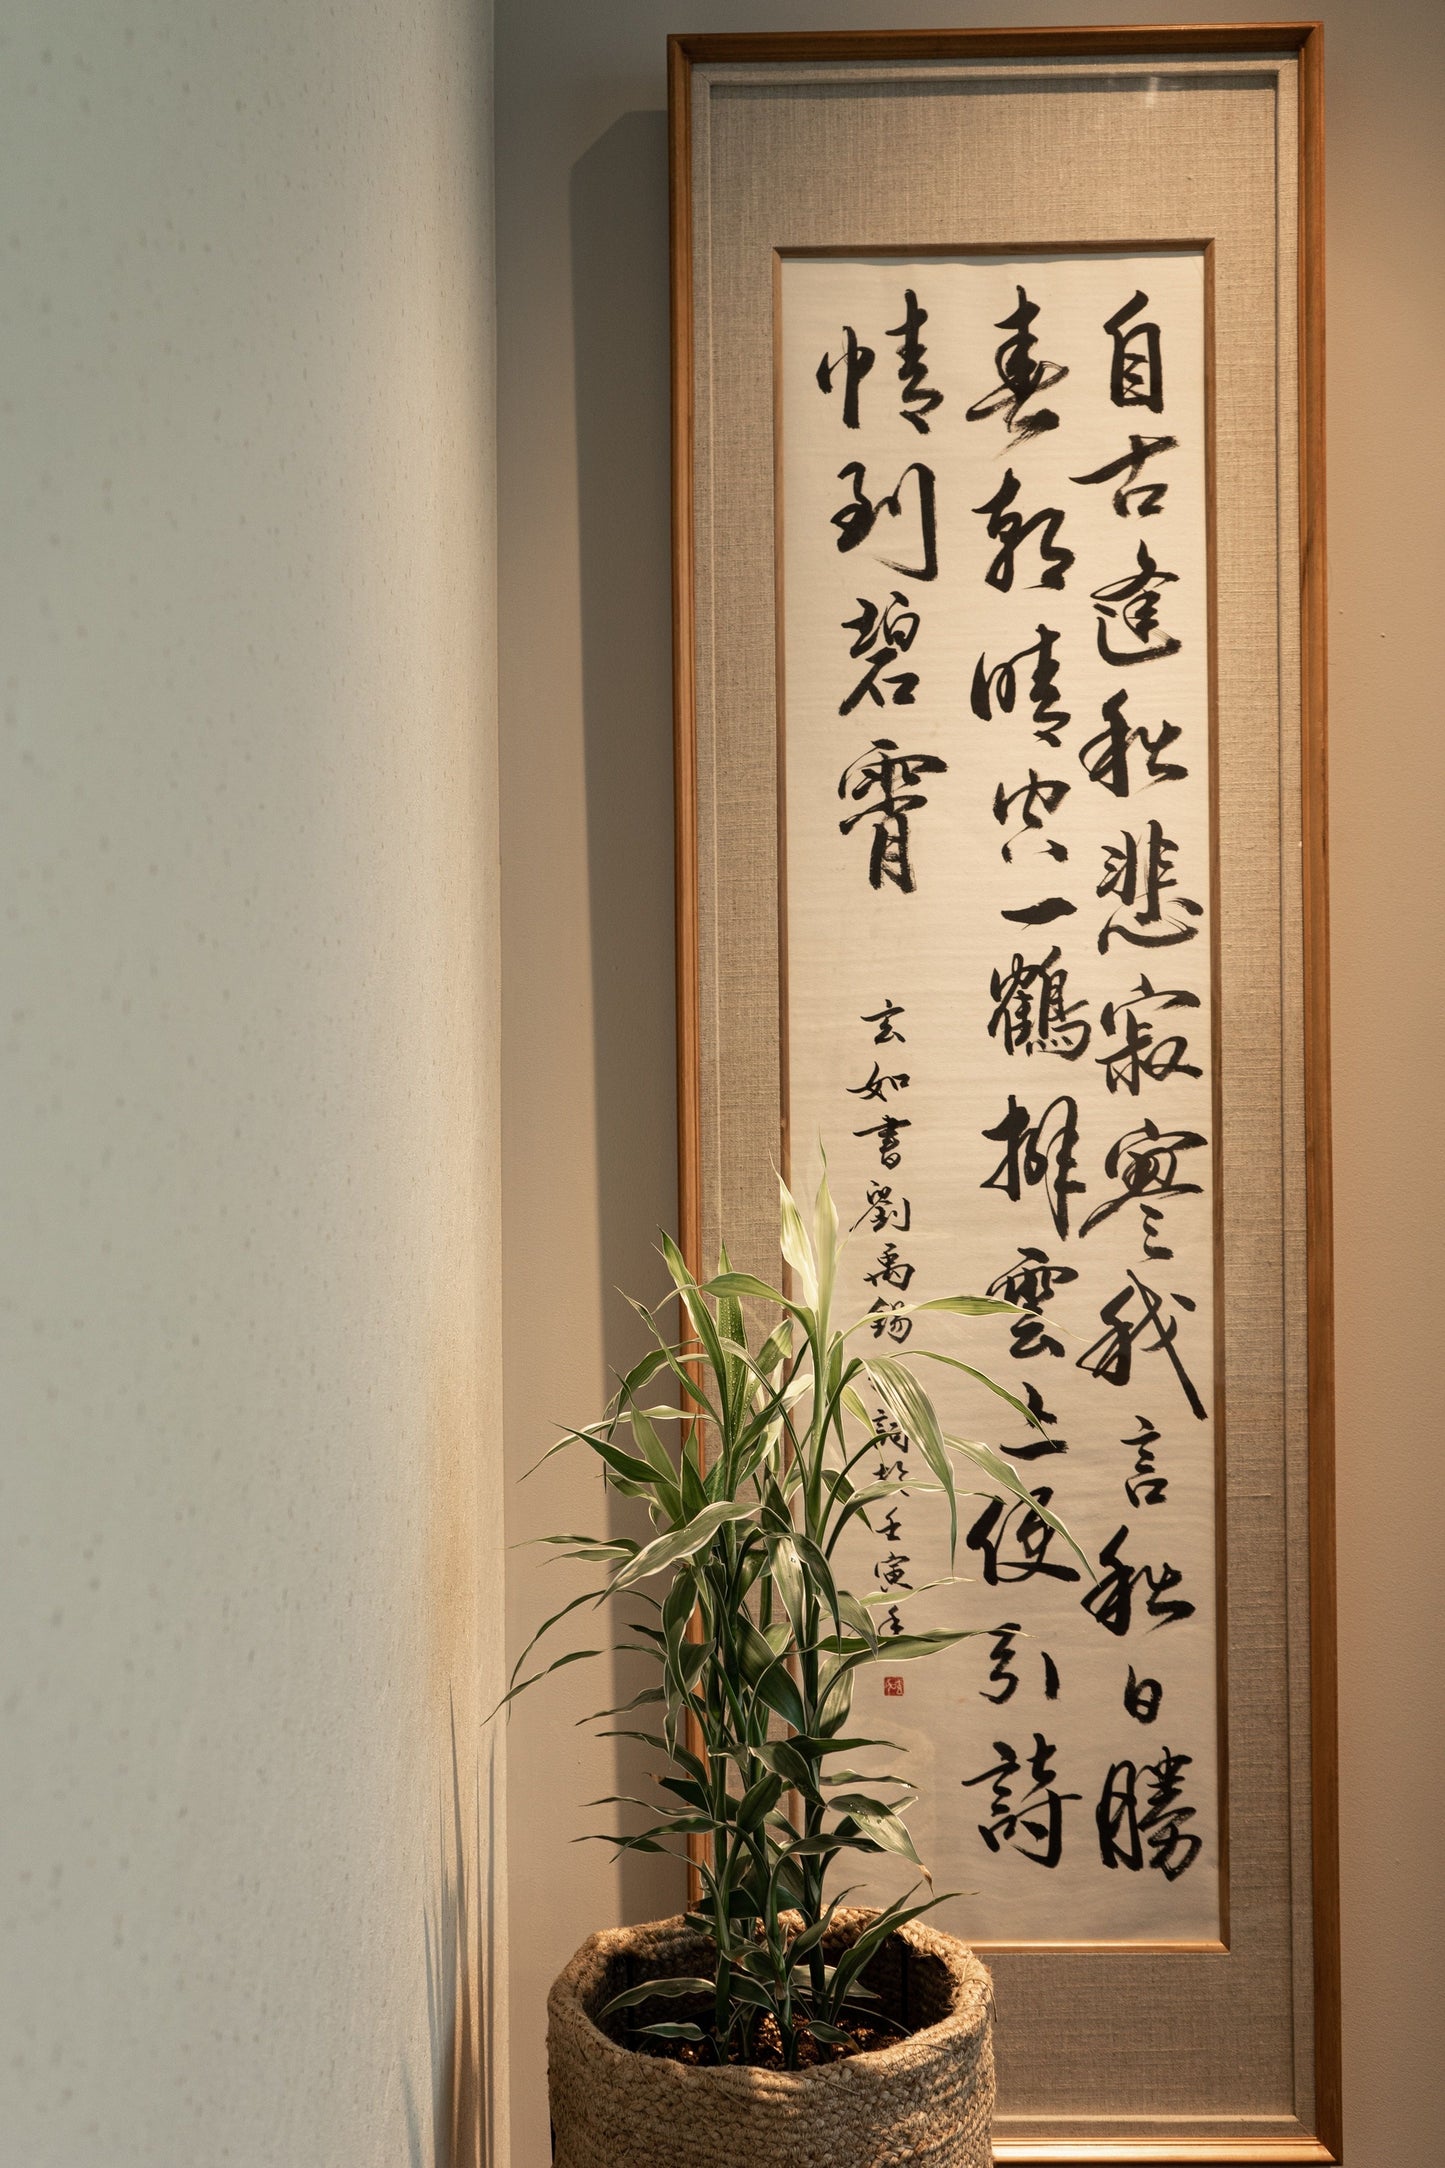 自古逢秋悲寂寥我言秋日勝
春朝晴空一鶴排雲上便引詩
情到碧霄
玄如書劉禹錫詞於壬寅年